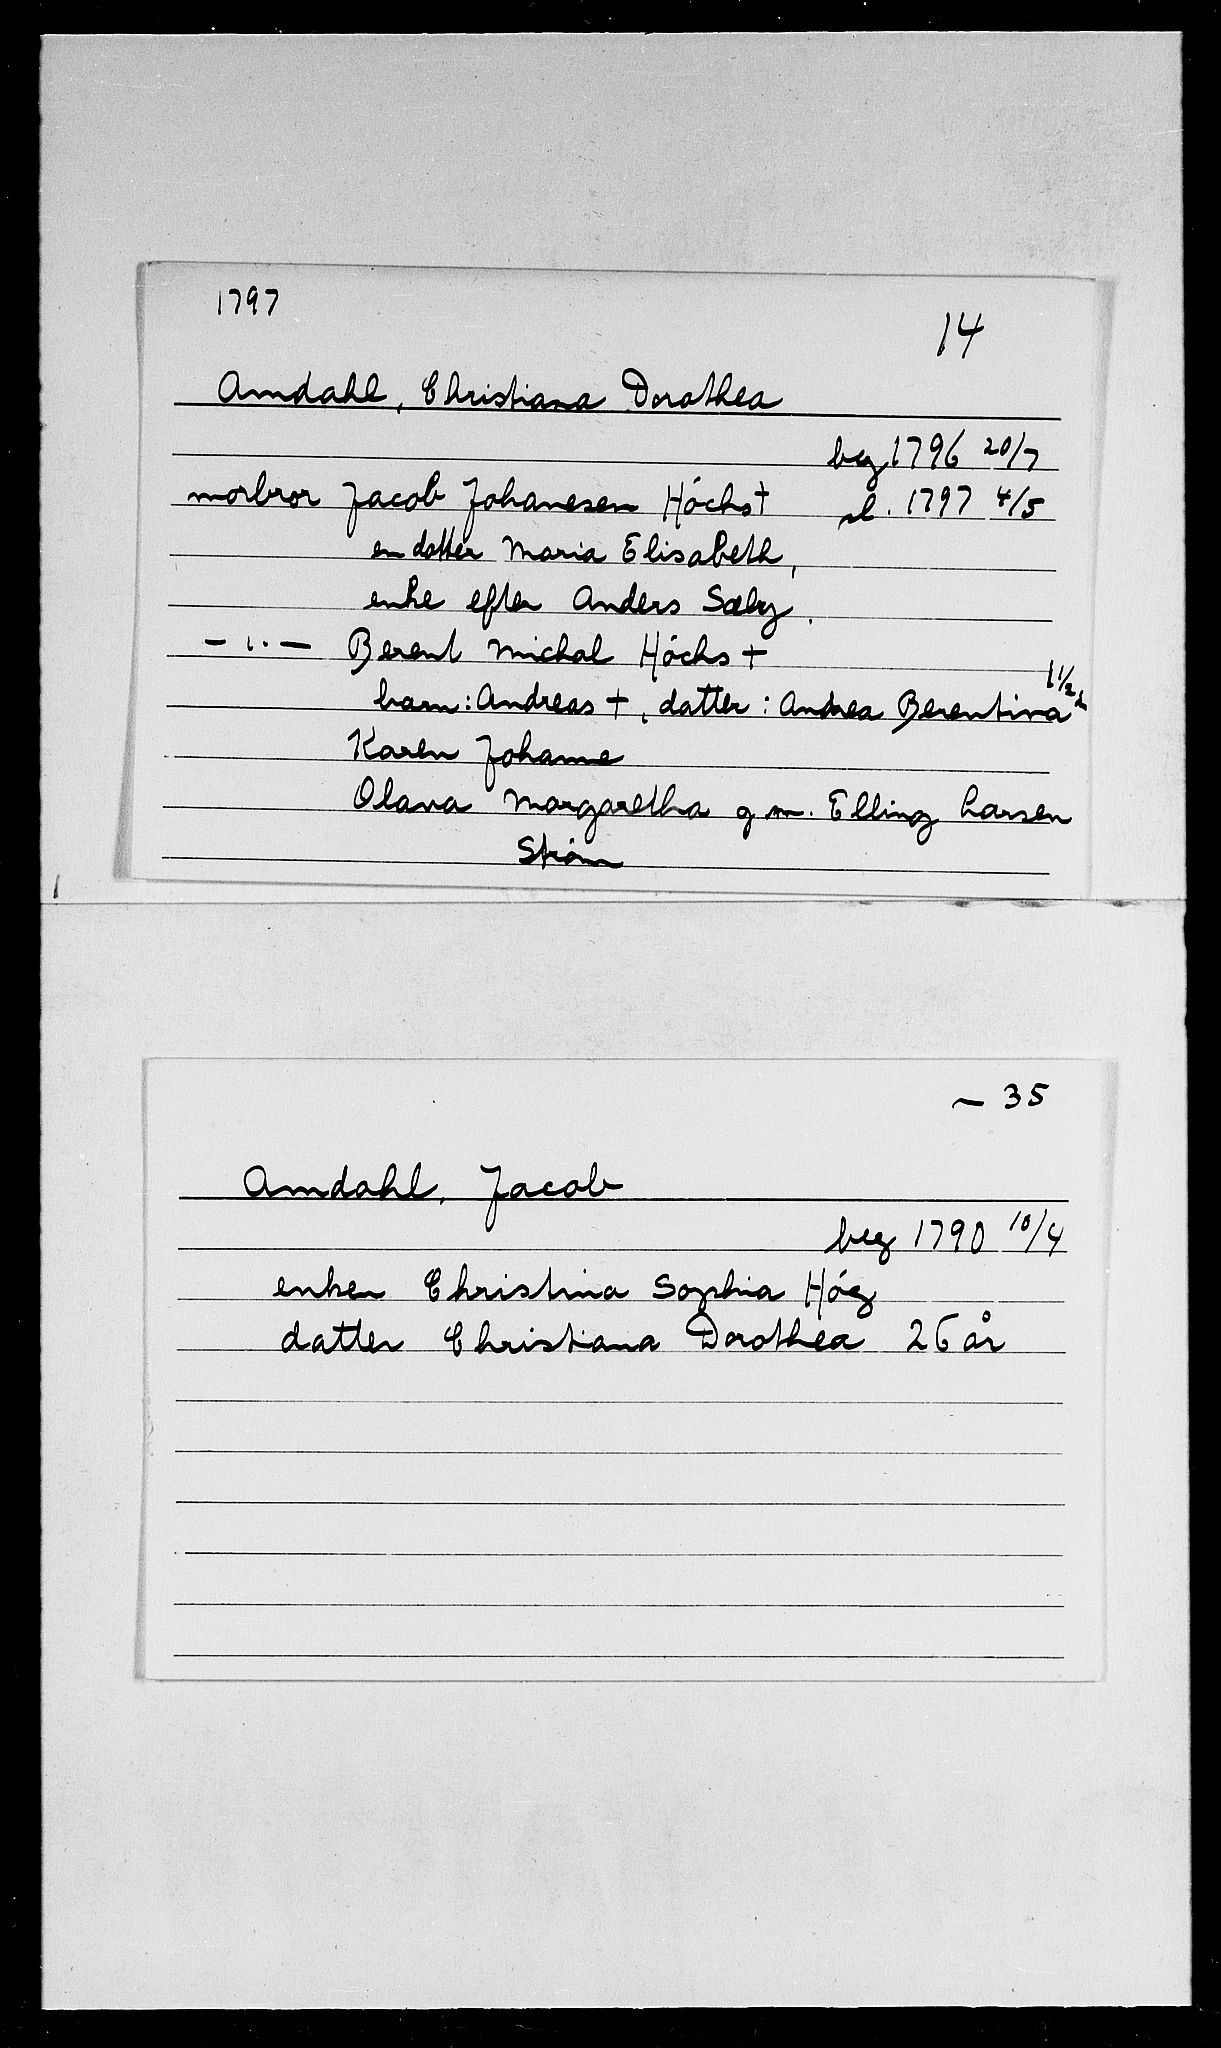 1797
14
Amdahl, Christiana Dorothea
beg 1796 20/7
morbror Jacob Johanesen Höchs † sl. 1797 4/5
en datter Maria Elisabeth,
enke efter Anders Sælby.
— ,, — Berent Michal Höchs †
barn: Andreas †, datter: Andrea Berentina 1 1/2
Karen Johanne
Olava Margaretha g m. Elling Larsen
Strøm
~ 35
Amdahl, Jacob
beg 1790 10/4
enken Christina Sophia Hög
datter Christiana Dorothea 26 år